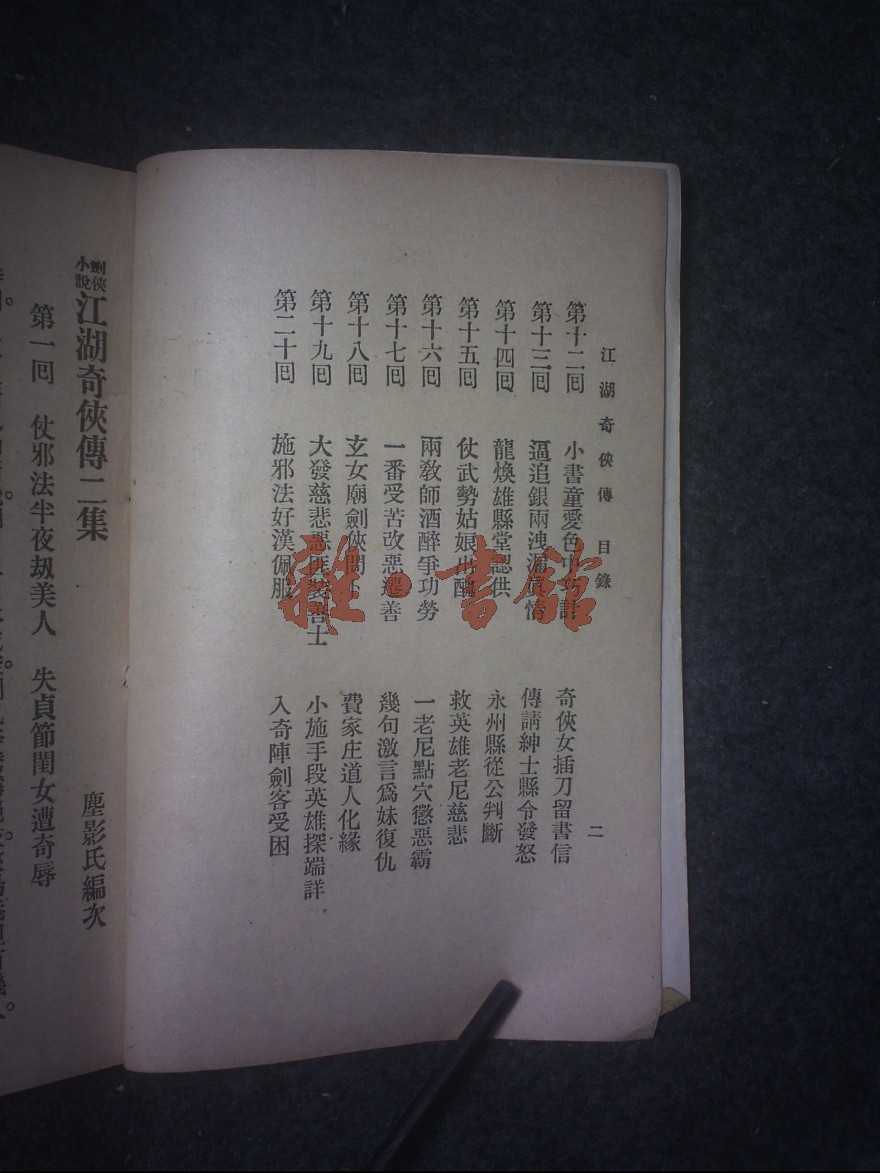 江湖奇俠傳 目錄 二
第十二囘 小書童愛色中巧計 奇俠女插刀留書信
第十三囘 逼追銀兩洩漏真情 傳請紳士縣令發怒
第十四囘 龍煥雄縣堂認供 永州縣從公判斷
第十五囘 仗武勢姑娘出醜 救英雄老尼慈悲
第十六囘 兩教師酒醉爭功勞 一老尼點穴懲惡霸
第十七囘 一番受苦改惡遷善 幾句激言爲妹復仇
第十八囘 玄女廟劍俠問卜 費家庄道人化緣
第十九囘 大發慈悲惡匪裝善士 小施手段英雄探端詳
第二十囘 施邪法好漢佩服 入奇陣劍客受困
劍俠小說 江湖奇俠傳二集
塵影氏編次
第一囘 仗邪法半夜刼美人 失貞節閨女遭奇辱
雜·書館